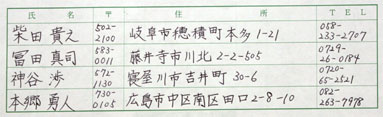 氏名 〒 住所 TEL
柴田 貴之 502-2100 岐阜市穂積町本多1-21 058-233-2707
冨田 真司 583-0011 藤井寺市川北2-2-505 0729-26-0184
神谷 渉 672-1130 寝屋川市吉井町30-6 0720-65-2521
本郷 勇人 730-0105 広島市中区南区田口2-8-10 082-263-7978